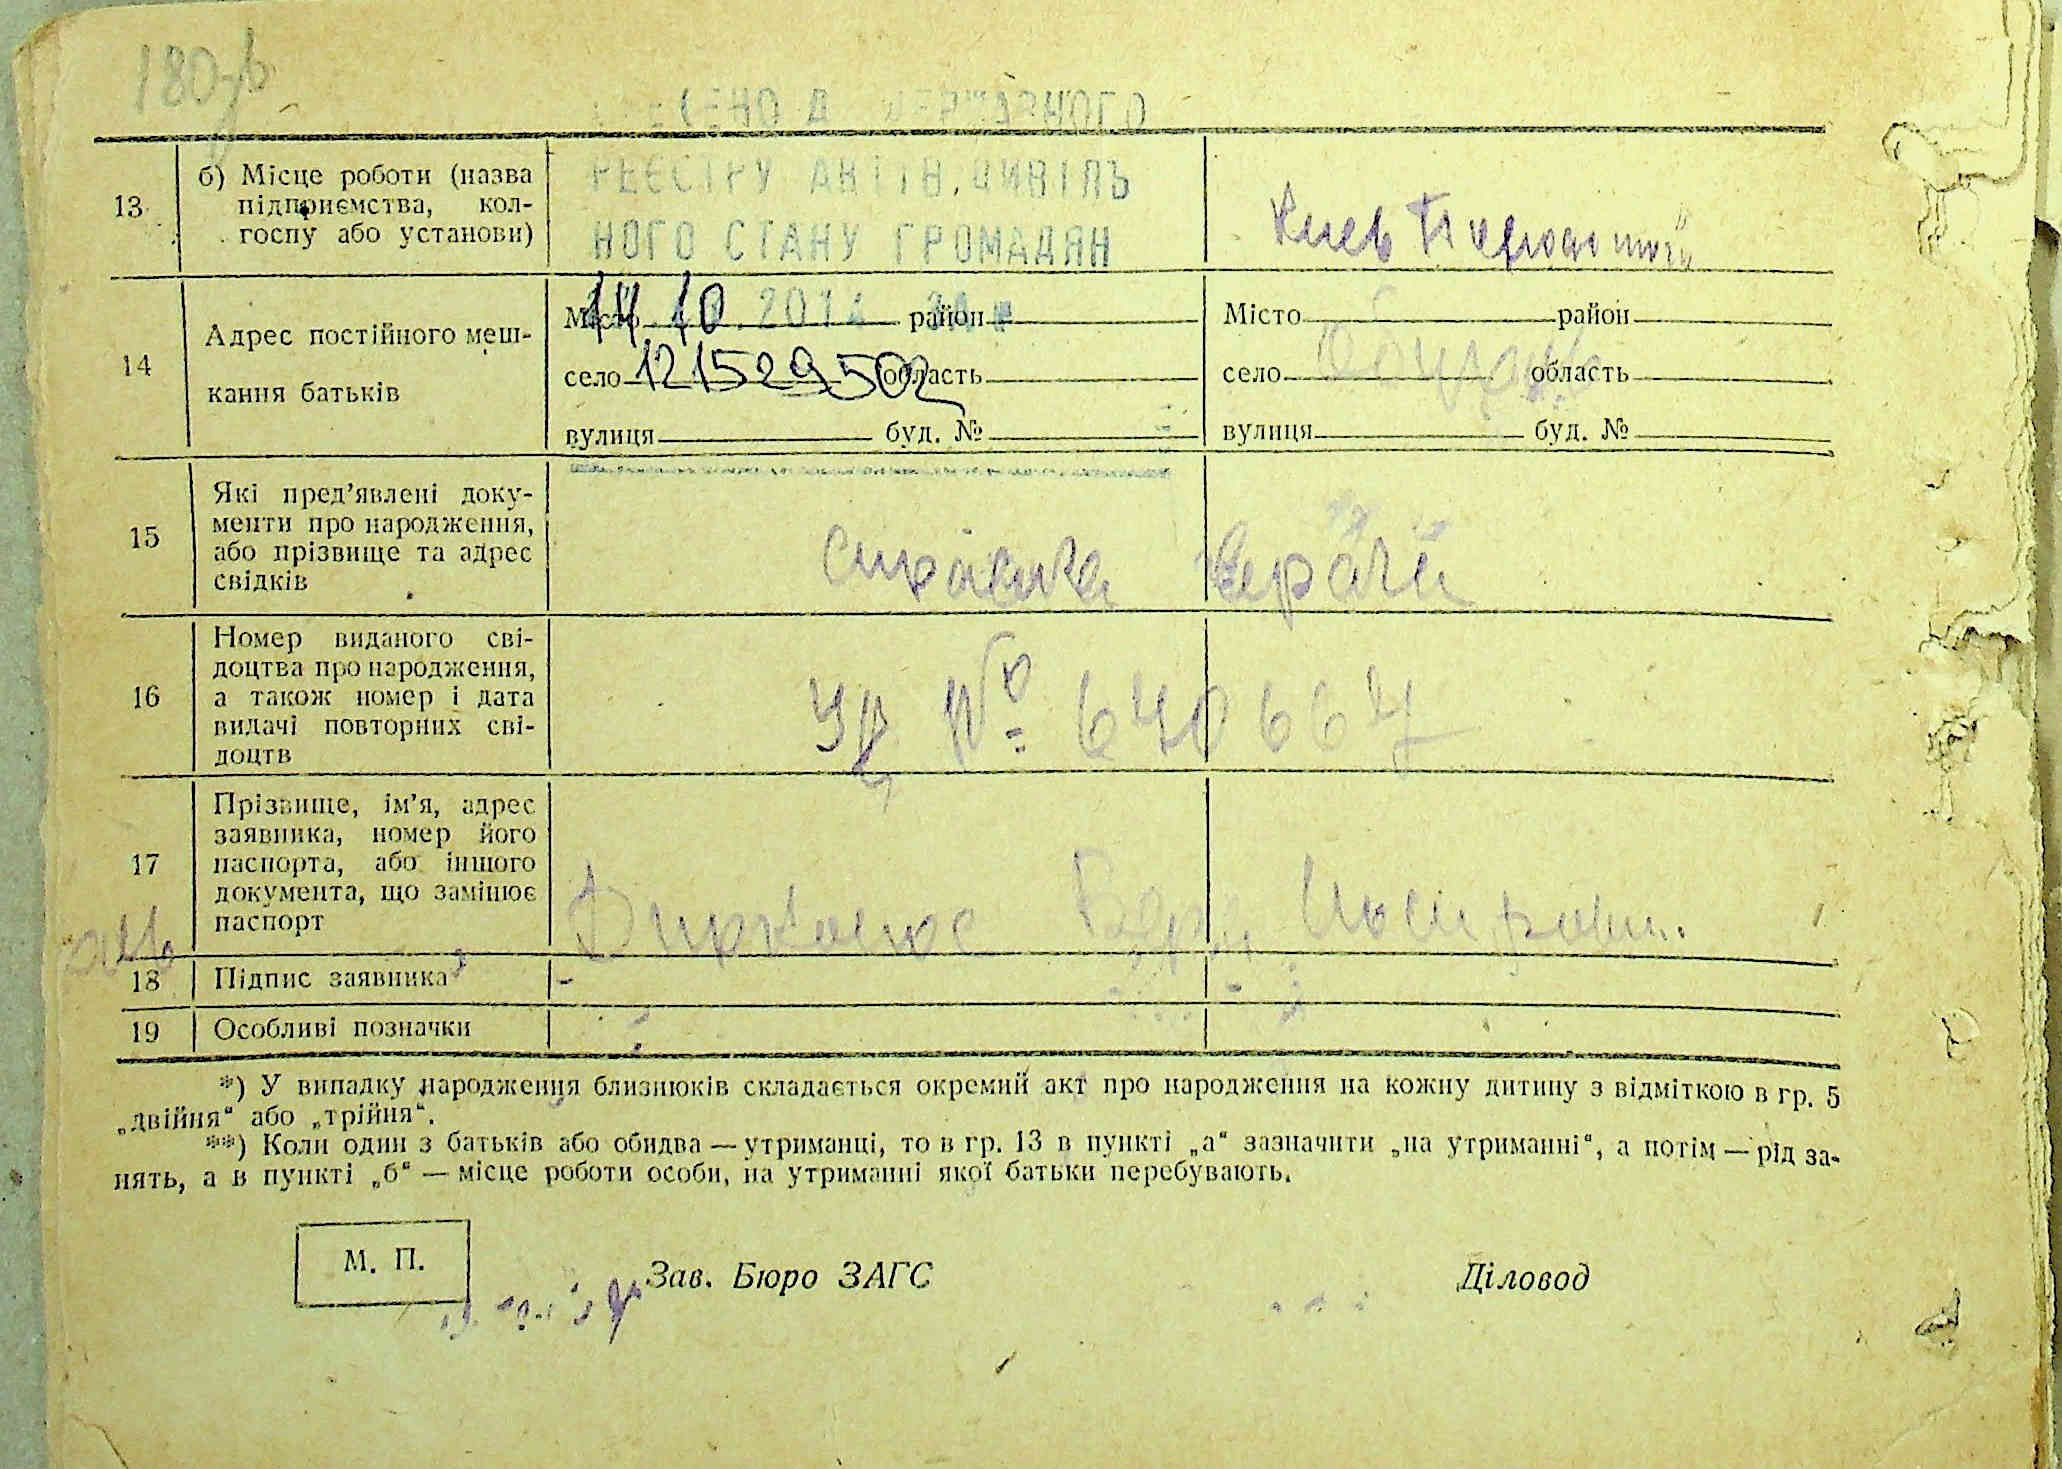 180
ДЕРЖАВНОГО
13
б) Місце роботи (назва
підприємства, кол-
госпу або установи)
РЕЄСТРУ АКТІВ ЦИВІЛЬ
НОГО СТАНУ ГРОМАДЯН
14
Адрес постійного меш-
кання батьків
Місто район
14 10 2014
село 121529502 область
вулиця буд. №
Місто район
село область
вулиця буд. №
15
Які пред’явлені доку-
менти про народження,
або прізвище та адрес
свідків
16
Номер виданого сві-
доцтва про народження,
а також номер і дата
видачі повторних сві-
доцтв
№ 640667
17
Прізвище, ім’я, адрес
заявника, номер його
паспорта, або іншого
документа, що замінює
паспорт
18
Підпис заявника
19
Особливі позначки
*) У випадку народження близнюків складається окремий акт про народження на кожну дитину з відміткою в гр. 5
„двійня“ або „трійня“.
**) Коли один з батьків або обидва — утриманці, то в гр. 13 в пункті „а“ зазначити „на утриманні“, а потім — рід за-
нять, а в пункті „б“ — місце роботи особи, на утриманні якої батьки перебувають.
М. П.
Зав. Бюро ЗАГС
Діловод